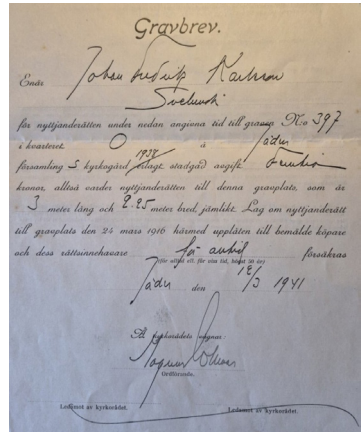 Gravbrev.
Enär Johan Fredrik Karlsson
för nyttjanderätten under nedan angivna tid till graven N:o 397
i kvarteret O å Jäder
församling s kyrkogård 1937 erlagt stadgad avgift
kronor, alltså varder nyttjanderätten till denna gravplats, som är
3 meter lång och 2.25 meter bred, jämlikt Lag om nyttjanderätt
till gravplats den 24 mars 1916 härmed upplåten till bemälde köpare
och dess rättsinnehavare för alltid försäkras
(för alltid ell. för viss tid, högst 50 år)
Jäder den 12/3 1941
Å kyrkorådets vägnar:
Ordförande.
Ledamot av kyrkorådet. Ledamot av kyrkorådet.